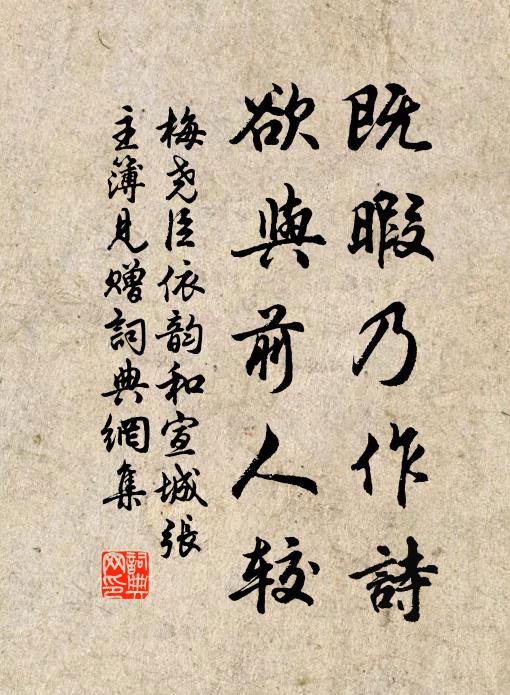 既暇乃作詩
欲與前人较
梅尧臣依韵和宣城張
主簿見赠詞典網集
詞典
网印